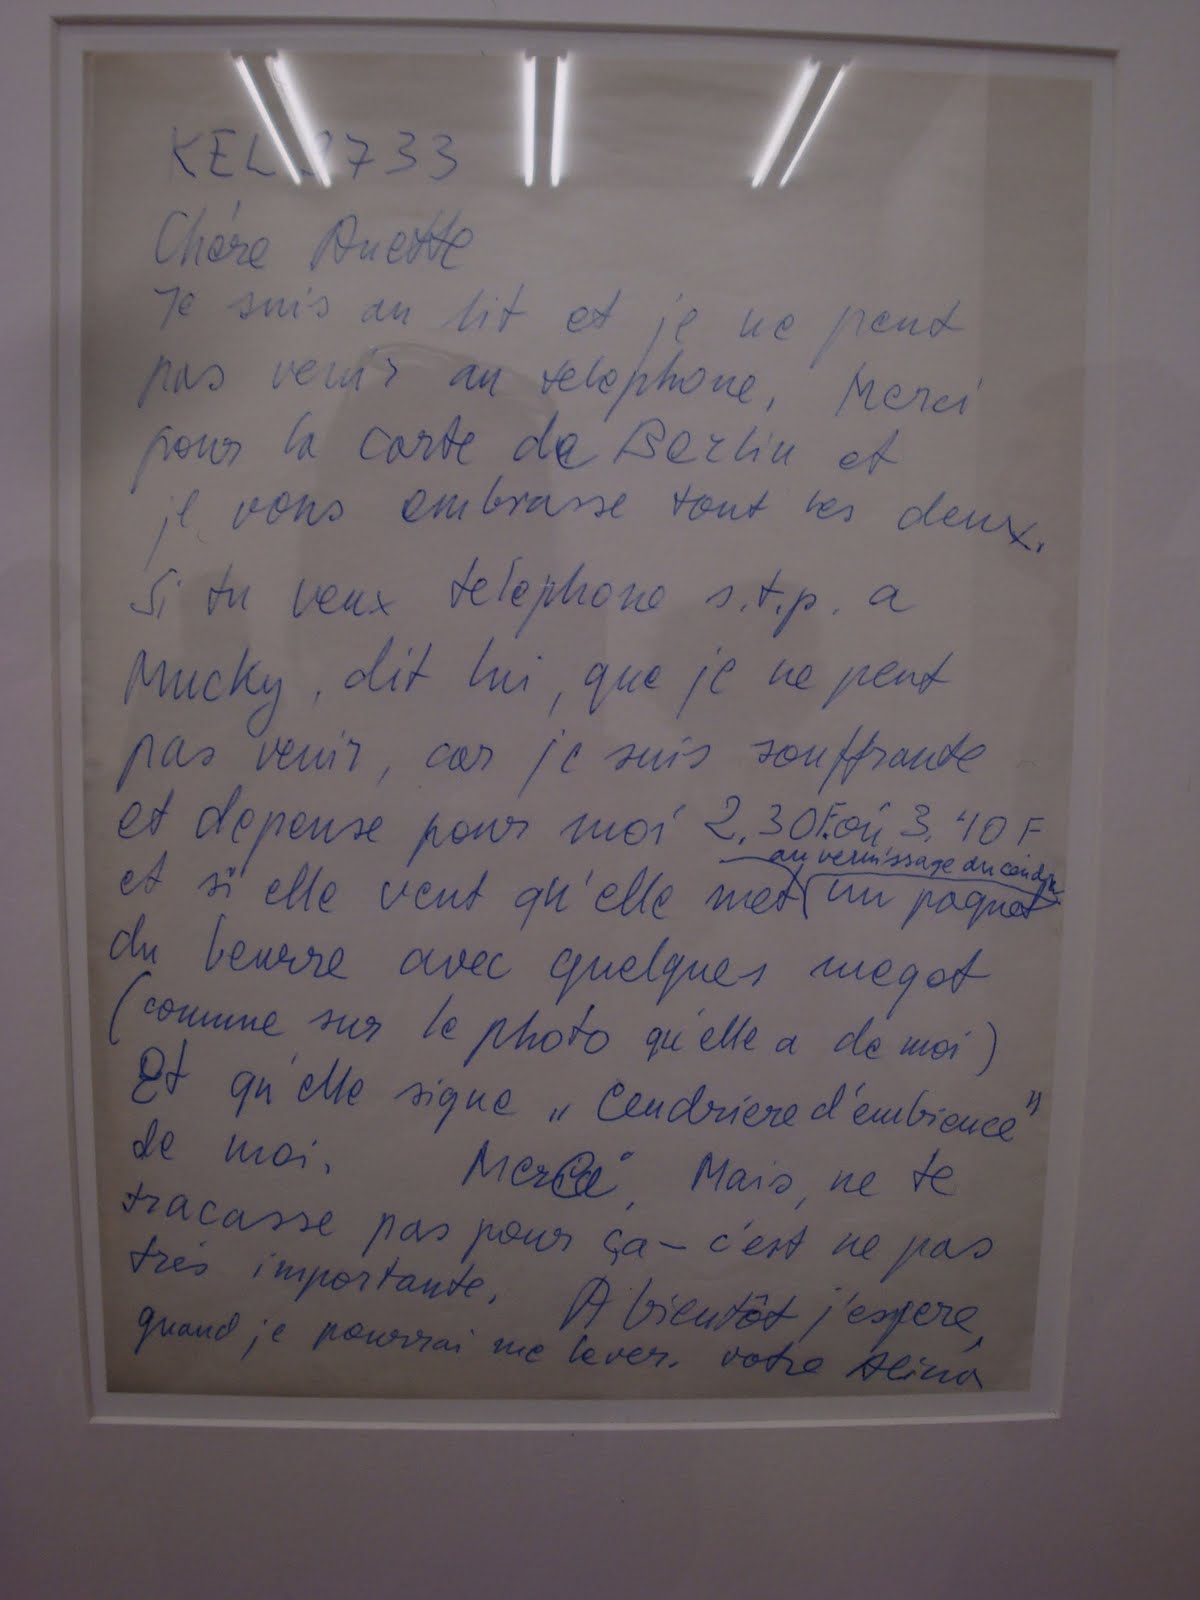 KEL 733
Chére Anette
Je suis au lit et je ne peut
pas venir au telephone. Merci
pour la carte de Berlin et
je vous embrasse tout les deux.
Si tu veux telephone s.t.p. a
Mucky, dit lui, que je ne peut
pas venir, car je suis souffrante
et depense pour moi 2.30F. oú 3.40F
au vernissage du
et si elle veut qu'elle met un paquet
du beurre avec quelques megot
(comme sur le photo qu'elle a de moi)
Et qu'elle signe „Cendriere d'embience"
de moi. Merci, Mais, ne te
tracasse pas pour ça – c'est ne pas
trés importante. A bientôt j'espere,
quand je pourrai me lever. votre Alina